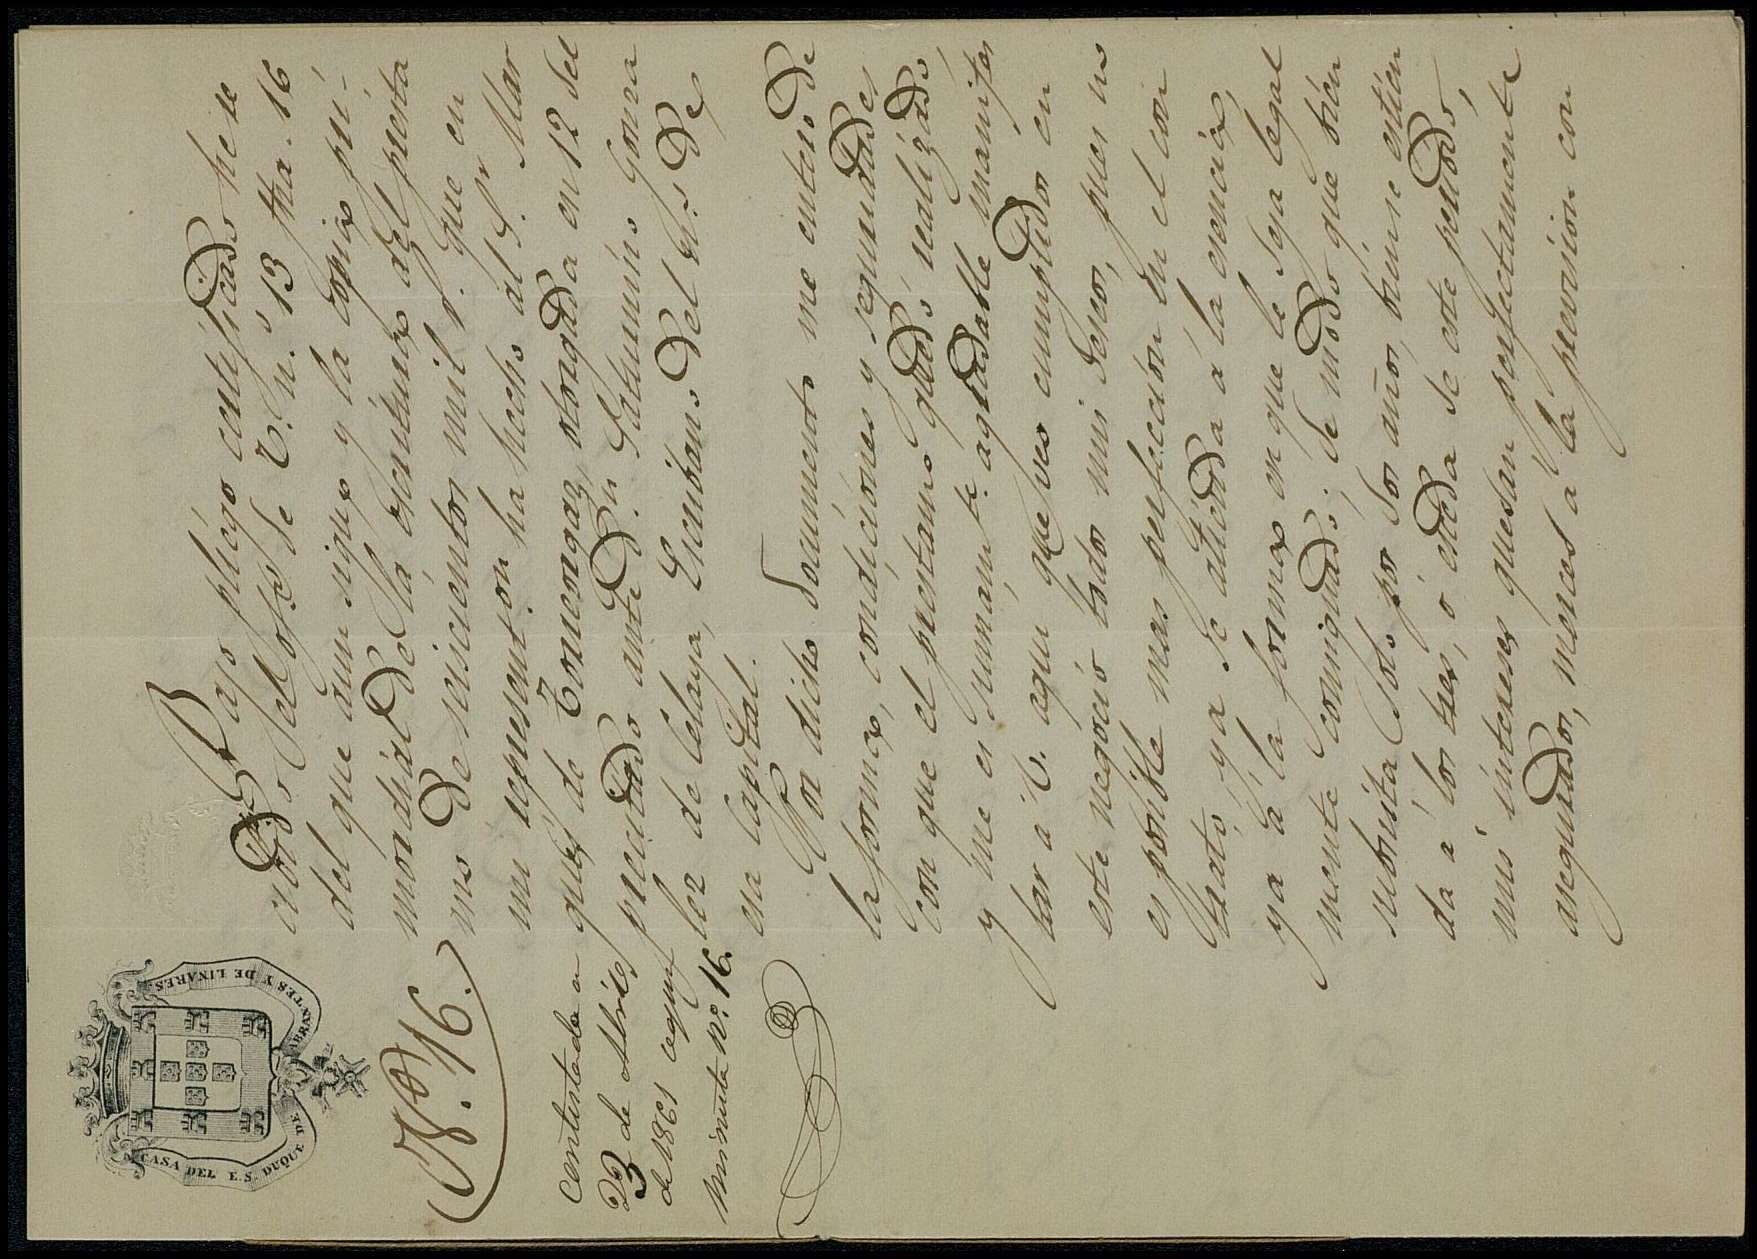 CASA DEL E. S. DUQUE DE ABRANTES Y DE LINARES.
N.º 16.
Contestada en
23 de Abril
de 1861 segun
minuta nº. 16.
Bajo pliego certificado he re
cibido el ofo. de V. n.º 13 fha. 16
del que aun sigue y la copia pri-
mordial de la escritura del presta
mo de seiscientos mil r.s que en
mi represent.on ha hecho al S.r Mar
qués de Tomongaz, otorgada en 12 del
precitado ante D.n Saturnino Gonza
lez de Celaya, Escribano del n.º de
esa Capital.
Por dicho documento me entero de
la forma, condiciones y seguridades
con que el prestamo quedó realizado,
y me es sumam.te agradable manifes
tar á V. que veo cumplidos en
este negocio todos mis deseos, pues no
es posible mas perfeccion en el con
trato, ya se atienda á la esencia,
ya á la forma en que le deja legal
mente consignado; de modo que bien
subsista solo por dos años, bien se estien
da a los tres, ó esceda de este periodo,
mis intereses quedan perfectamente
asegurados, merced a la prevision con